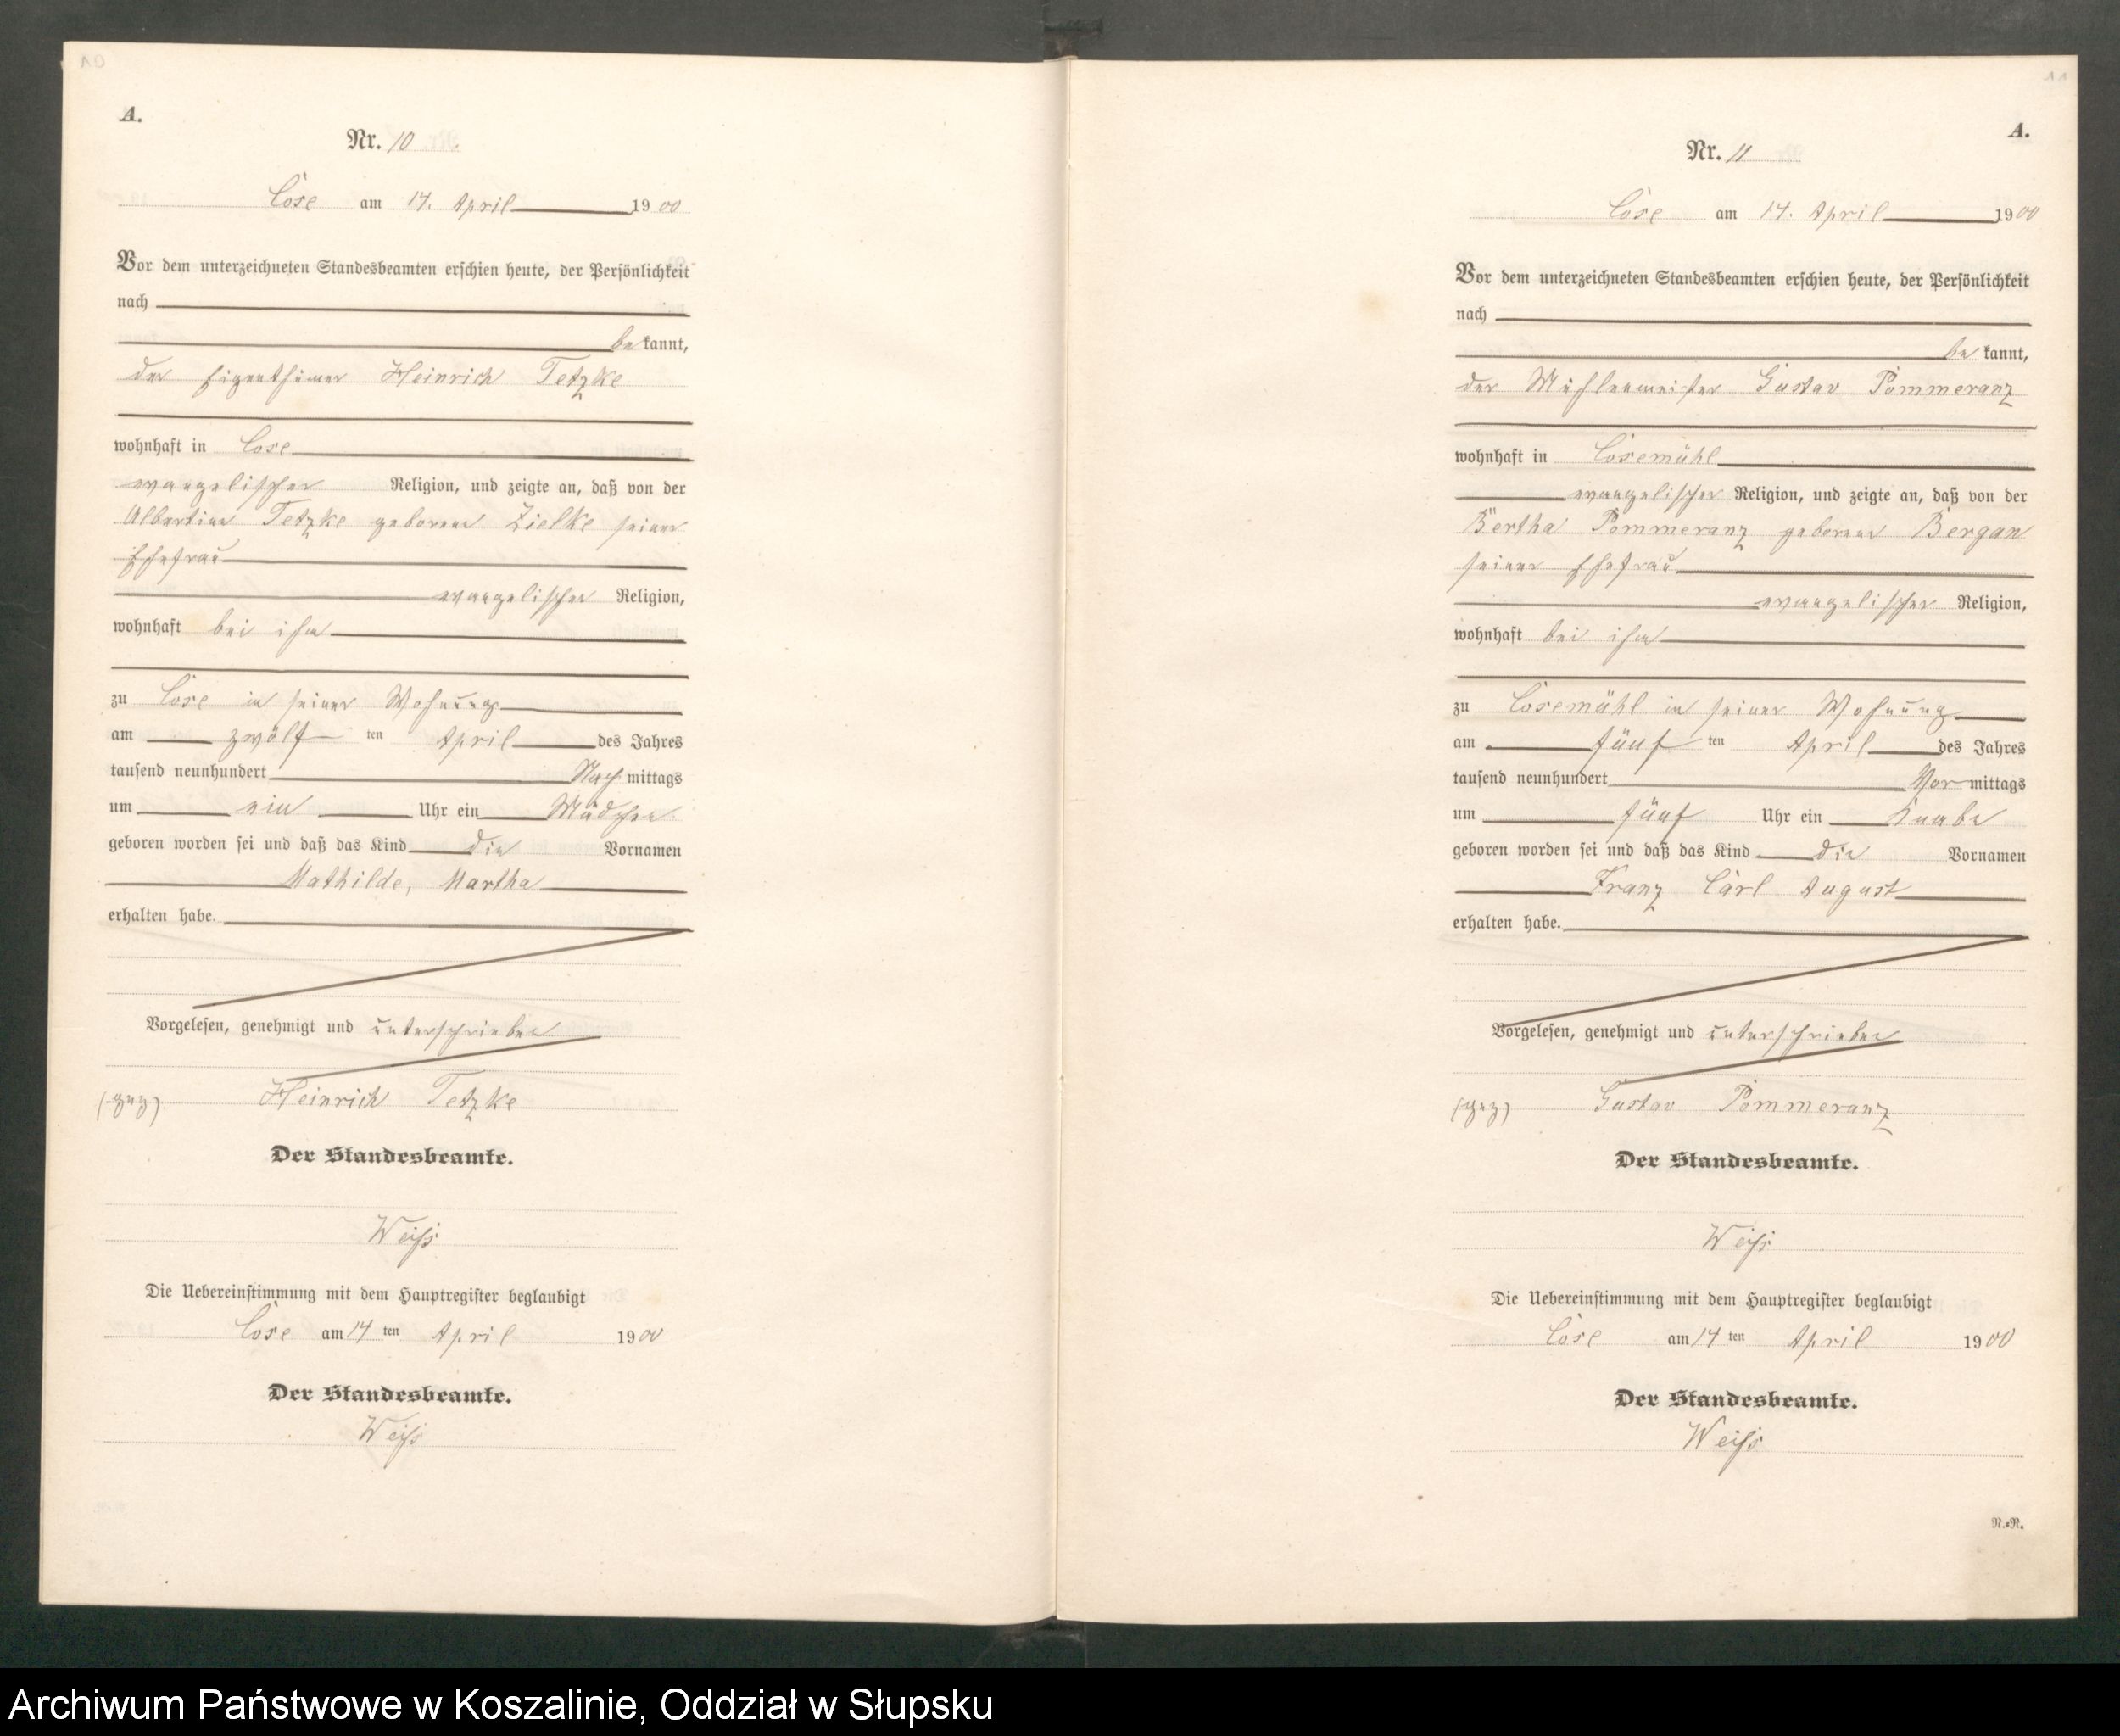 10
A.
Nr. 10
Cose am 14. April 1900
Vor dem unterzeichneten Standesbeamten erschien heute, der Persönlichkeit
nach
be kannt,
der Eigenthümer Heinrich Tetzke
wohnhaft in Cose
evangelischer Religion, und zeigte an, daß von der
Albertine Tetzke geborene Zielke seiner
Ehefrau
evangelischer Religion,
wohnhaft bei ihm
zu Cose in seiner Wohnung
am zwölf ten April des Jahres
tausend neunhundert Nach mittags
um ein Uhr ein Mädchen
geboren worden sei und daß das Kind die Vornamen
Mathilde, Martha
erhalten habe.
Vorgelesen, genehmigt und unterschrieben
(gez) Heinrich Tetzke
Der Standesbeamte.
Weiß
Die Uebereinstimmung mit dem Hauptregister beglaubigt
Cose am 14 ten April 1900
Der Standesbeamte.
Weiß
11
A.
Nr. 11
Cose am 14. April 1900
Vor dem unterzeichneten Standesbeamten erschien heute, der Persönlichkeit
nach
be kannt,
der Mühlenmeister Gustav Pommeranz
wohnhaft in Cosemühl
evangelischer Religion, und zeigte an, daß von der
Bertha Pommeranz geborene Bergan
seiner Ehefrau
evangelischer Religion,
wohnhaft bei ihm
zu Cosemühl in seiner Wohnung
am fünf ten April des Jahres
tausend neunhundert Vor mittags
um fünf Uhr ein Knabe
geboren worden sei und daß das Kind die Vornamen
Franz Carl August
erhalten habe.
Vorgelesen, genehmigt und unterschrieben
(gez) Gustav Pommeranz
Der Standesbeamte.
Weiß
Die Uebereinstimmung mit dem Hauptregister beglaubigt
Cose am 14 ten April 1900
Der Standesbeamte.
Weiß
N.=N.
Archiwum Państwowe w Koszalinie, Oddział w Słupsku